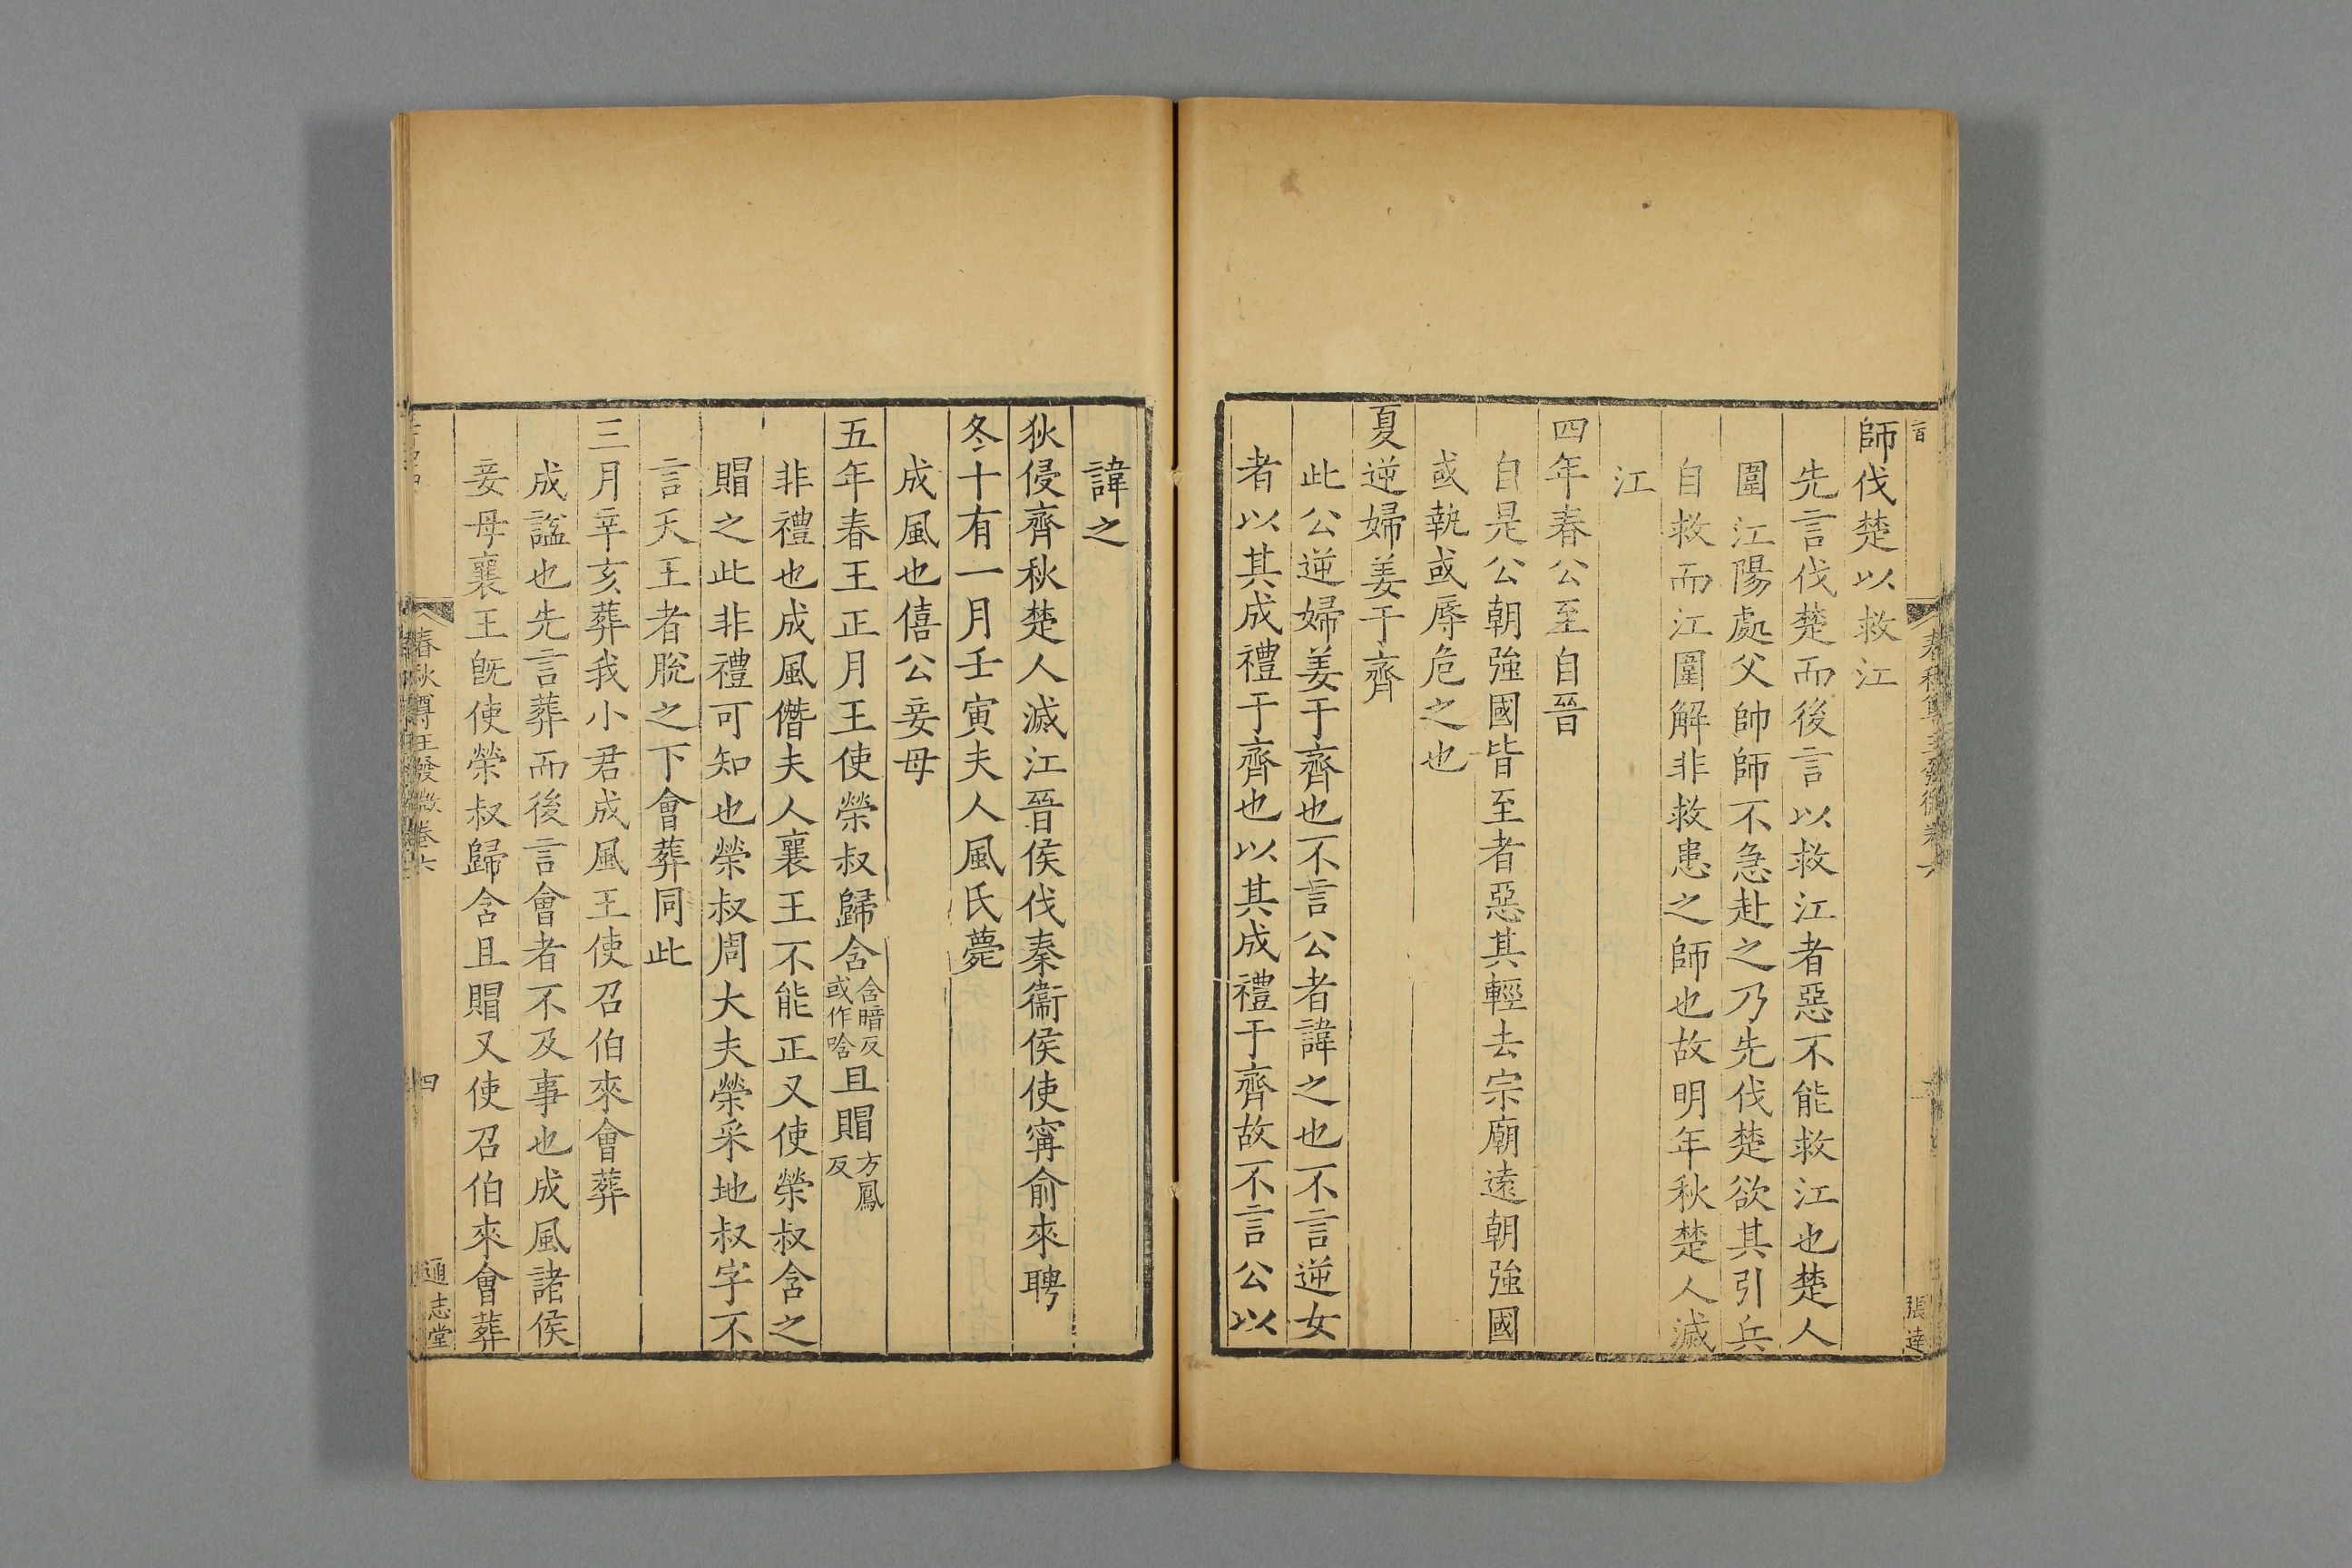 師伐楚以救江
先言伐楚而後言以救江者惡不能救江也楚人
圍江陽處父帥師不急赴之乃先伐楚欲其引兵
自救而江圍解非救患之師也故明年秋楚人滅
江
四年春公至自晉
自是公朝強國皆至者惡其輕去宗廟遠朝強國
或執或辱危之也
夏逆婦姜于齊
此公逆婦姜于齊也不言公者諱之也不言逆女
者以其成禮于齊也以其成禮于齊故不言公以
張達
諱之
狄侵齊秋楚人滅江晉侯伐秦衞侯使甯俞來聘
冬十有一月壬寅夫人風氏薨
成風也僖公妾母
五年春王正月王使榮叔歸含含暗反或作唅且賵方鳳反
非禮也成風僭夫人襄王不能正又使榮叔含之
賵之此非禮可知也榮叔周大夫榮采地叔字不
言天王者脫之下會葬同此
三月辛亥葬我小君成風王使召伯來會葬
成諡也先言葬而後言會者不及事也成風諸侯
妾母襄王旣使榮叔歸含且賵又使召伯來會葬
春秋尊王發微卷六
四
通志堂